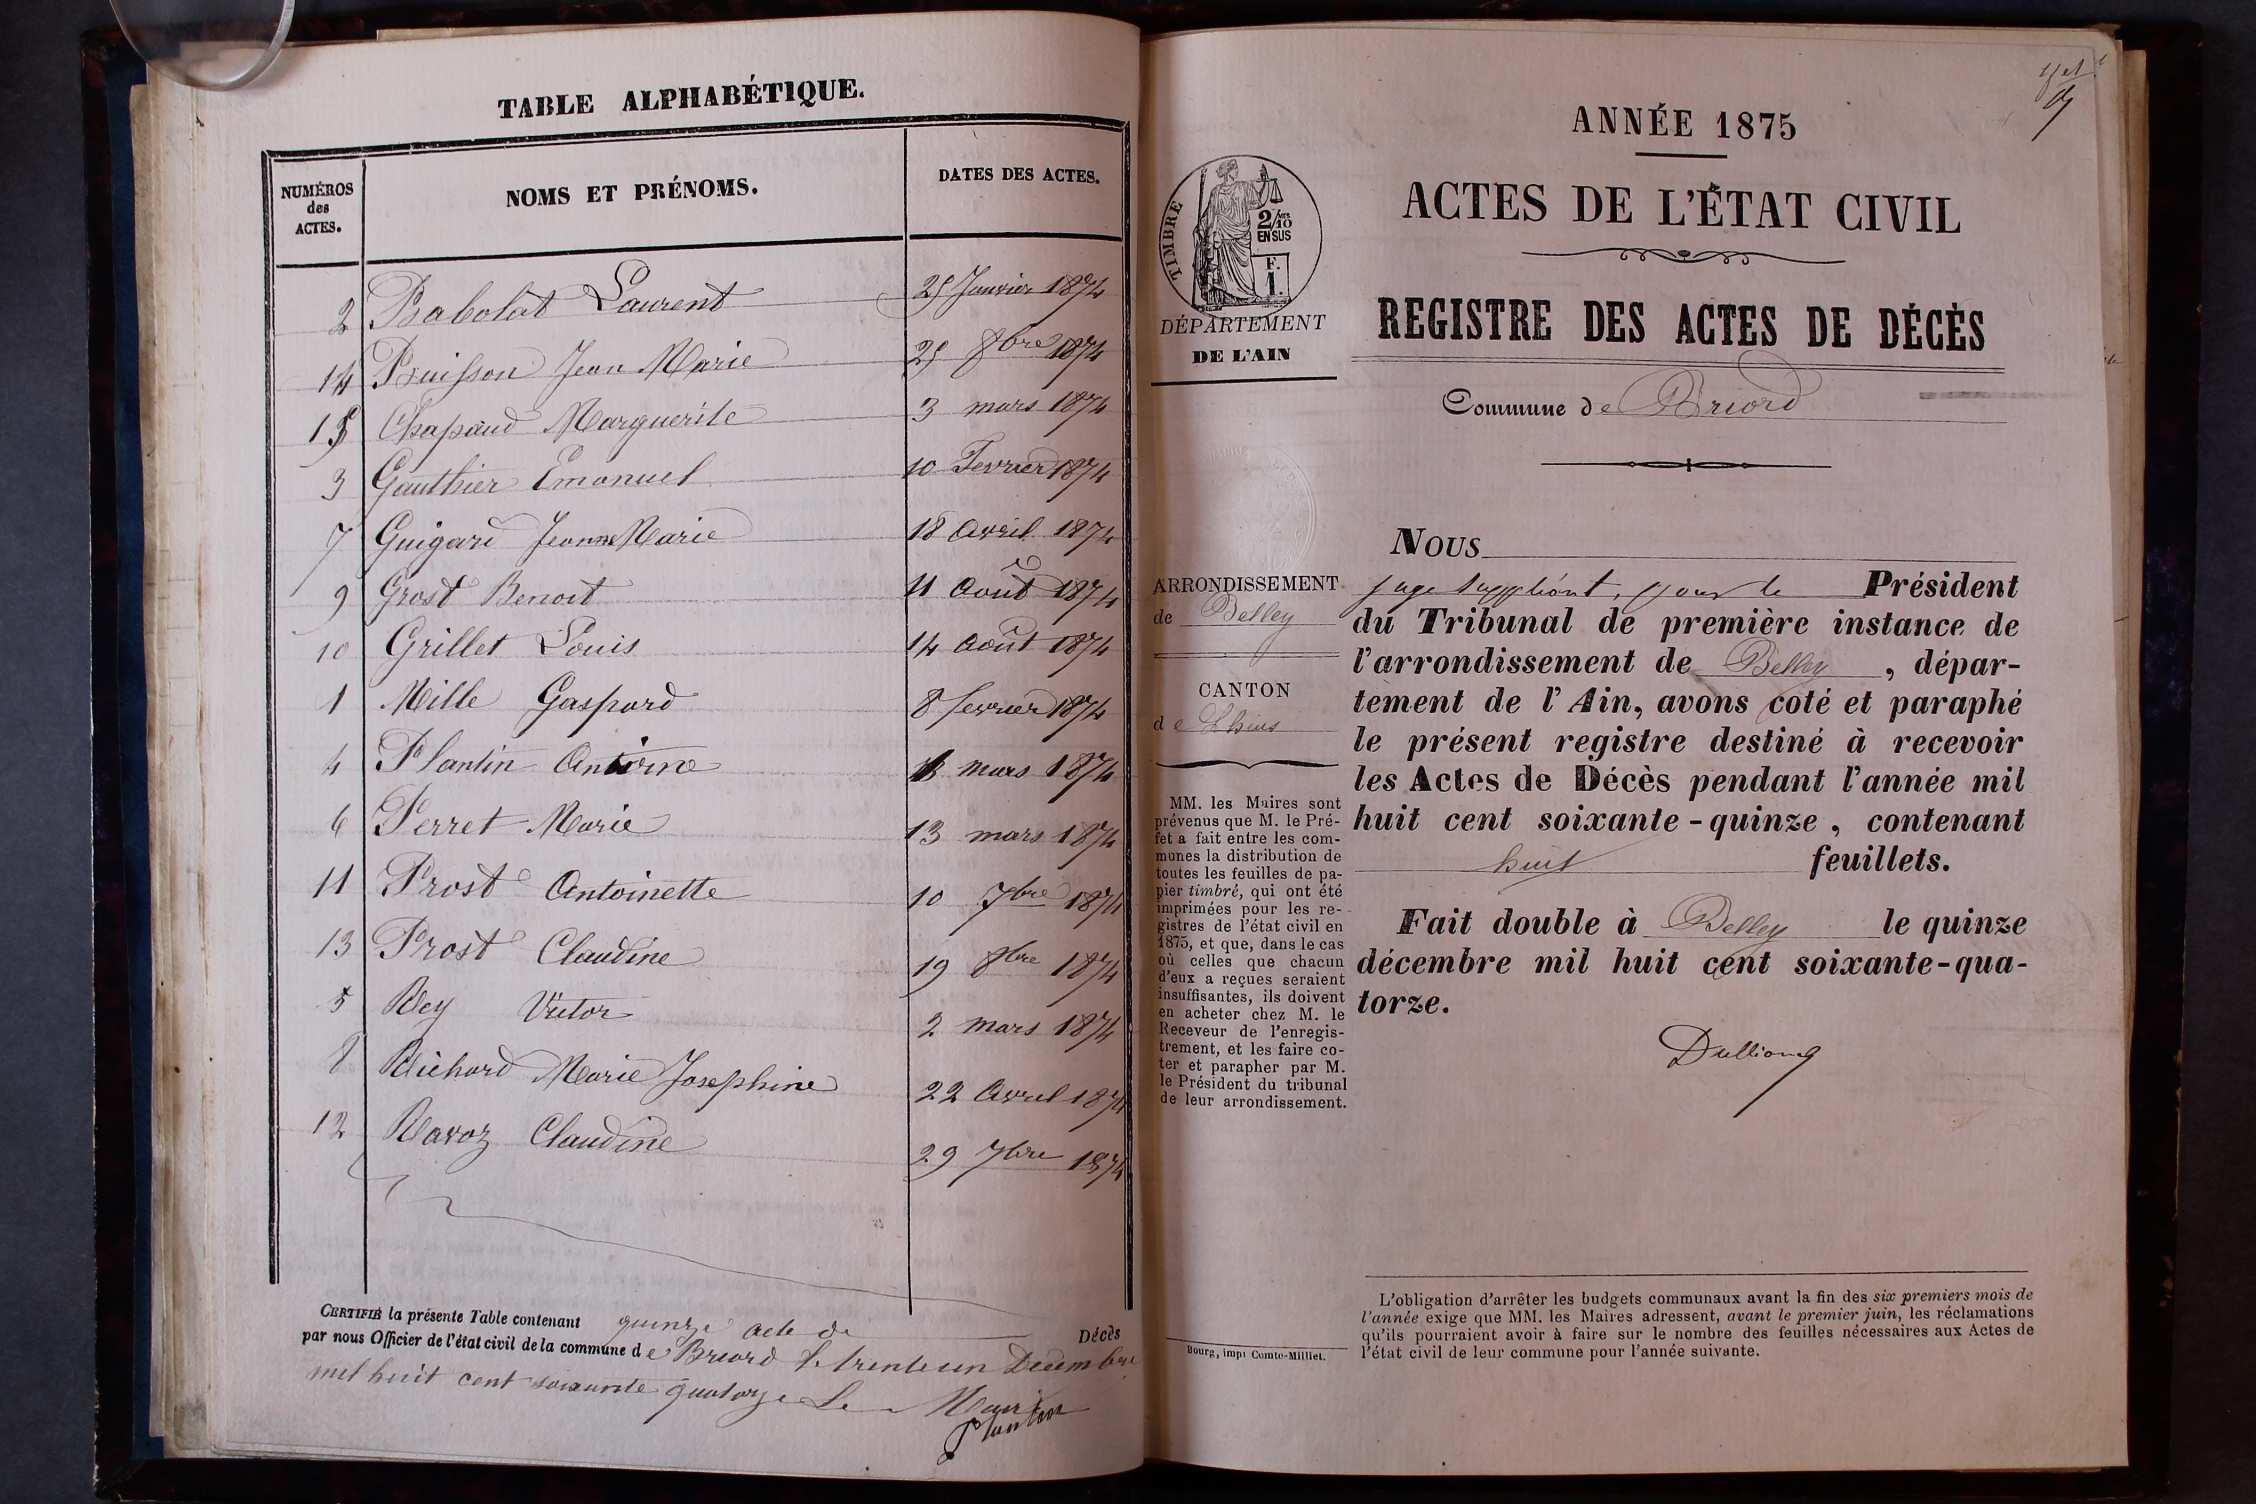 TABLE ALPHABÉTIQUE.
NUMÉROS des ACTES.
NOMS ET PRÉNOMS.
DATES DES ACTES.
2 Babolat Laurent 25 Janvier 1874
14 Buisson Jean Marie 25 8bre 1874
15 Chapaud Marguerite 3 mars 1874
3 Gauthier Emanuel 10 Fevrier 1874
7 Guigard Jeanne Marie 18 Avril 1874
9 Grost Benoit 11 Août 1874
10 Grillet Louis 14 Août 1874
1 Mille Gaspard 8 fevrier 1874
4 Plantin Antoine mars 1874
6 Perret Marie 13 mars 1874
11 Prost Antoinette 10 7bre 1874
13 Prost Claudine 19 8bre 1874
5 Rey Victor 2 mars 1874
8 Richard Marie Josephine 22 Avril 1874
12 Ravoz Claudine 29 7bre 1874
CERTIFIÉ la présente Table contenant quinze acte de Décès
par nous Officier de l'état civil de la commune de Briord le trente un Decembre
mil huit cent soixante quatorze Le Maire
Plantin
ANNÉE 1875
ACTES DE L'ÉTAT CIVIL
REGISTRE DES ACTES DE DÉCÈS
Commune de Briord
TIMBRE
2/10 EN SUS
F. 1.
DÉPARTEMENT
DE L'AIN
ARRONDISSEMENT
de Belley
CANTON
de Lhuis
MM. les Maires sont
prévenus que M. le Pré-
fet a fait entre les com-
munes la distribution de
toutes les feuilles de pa-
pier timbré, qui ont été
imprimées pour les re-
gistres de l'état civil en
1875, et que, dans le cas
où celles que chacun
d'eux a reçues seraient
insuffisantes, ils doivent
en acheter chez M. le
Receveur de l'enregis-
trement, et les faire co-
ter et parapher par M.
le Président du tribunal
de leur arrondissement.
Bourg, impr Comte-Milliet.
NOUS
juge suppléant, pour le Président
du Tribunal de première instance de
l'arrondissement de Belley, dépar-
tement de l'Ain, avons coté et paraphé
le présent registre destiné à recevoir
les Actes de Décès pendant l'année mil
huit cent soixante-quinze, contenant
huit feuillets.
Fait double à Belley le quinze
décembre mil huit cent soixante-qua-
torze.
L'obligation d'arrêter les budgets communaux avant la fin des six premiers mois de
l'année exige que MM. les Maires adressent, avant le premier juin, les réclamations
qu'ils pourraient avoir à faire sur le nombre des feuilles nécessaires aux Actes de
l'état civil de leur commune pour l'année suivante.